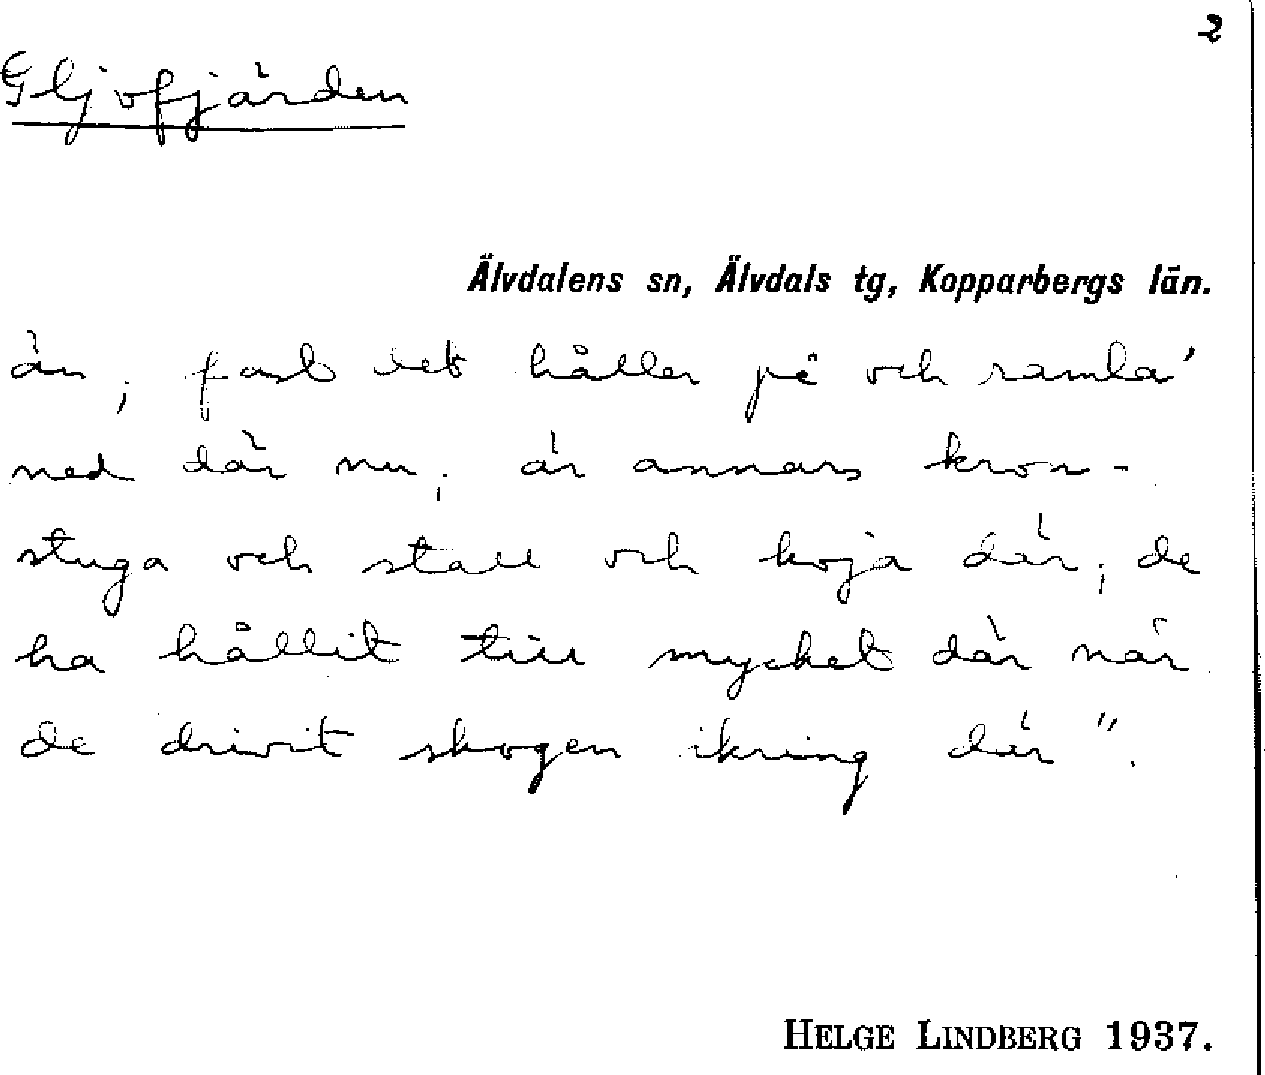 2
Gljofjärden
Älvdalens sn, Älvdals tg, Kopparbergs län.
än, fast det håller på och ramla'
ned där nu; är annars kron-
stuga och stall och koja där; de
ha hållit till mycket där när
de drivit skogen ikring där".
HELGE LINDBERG 1937.